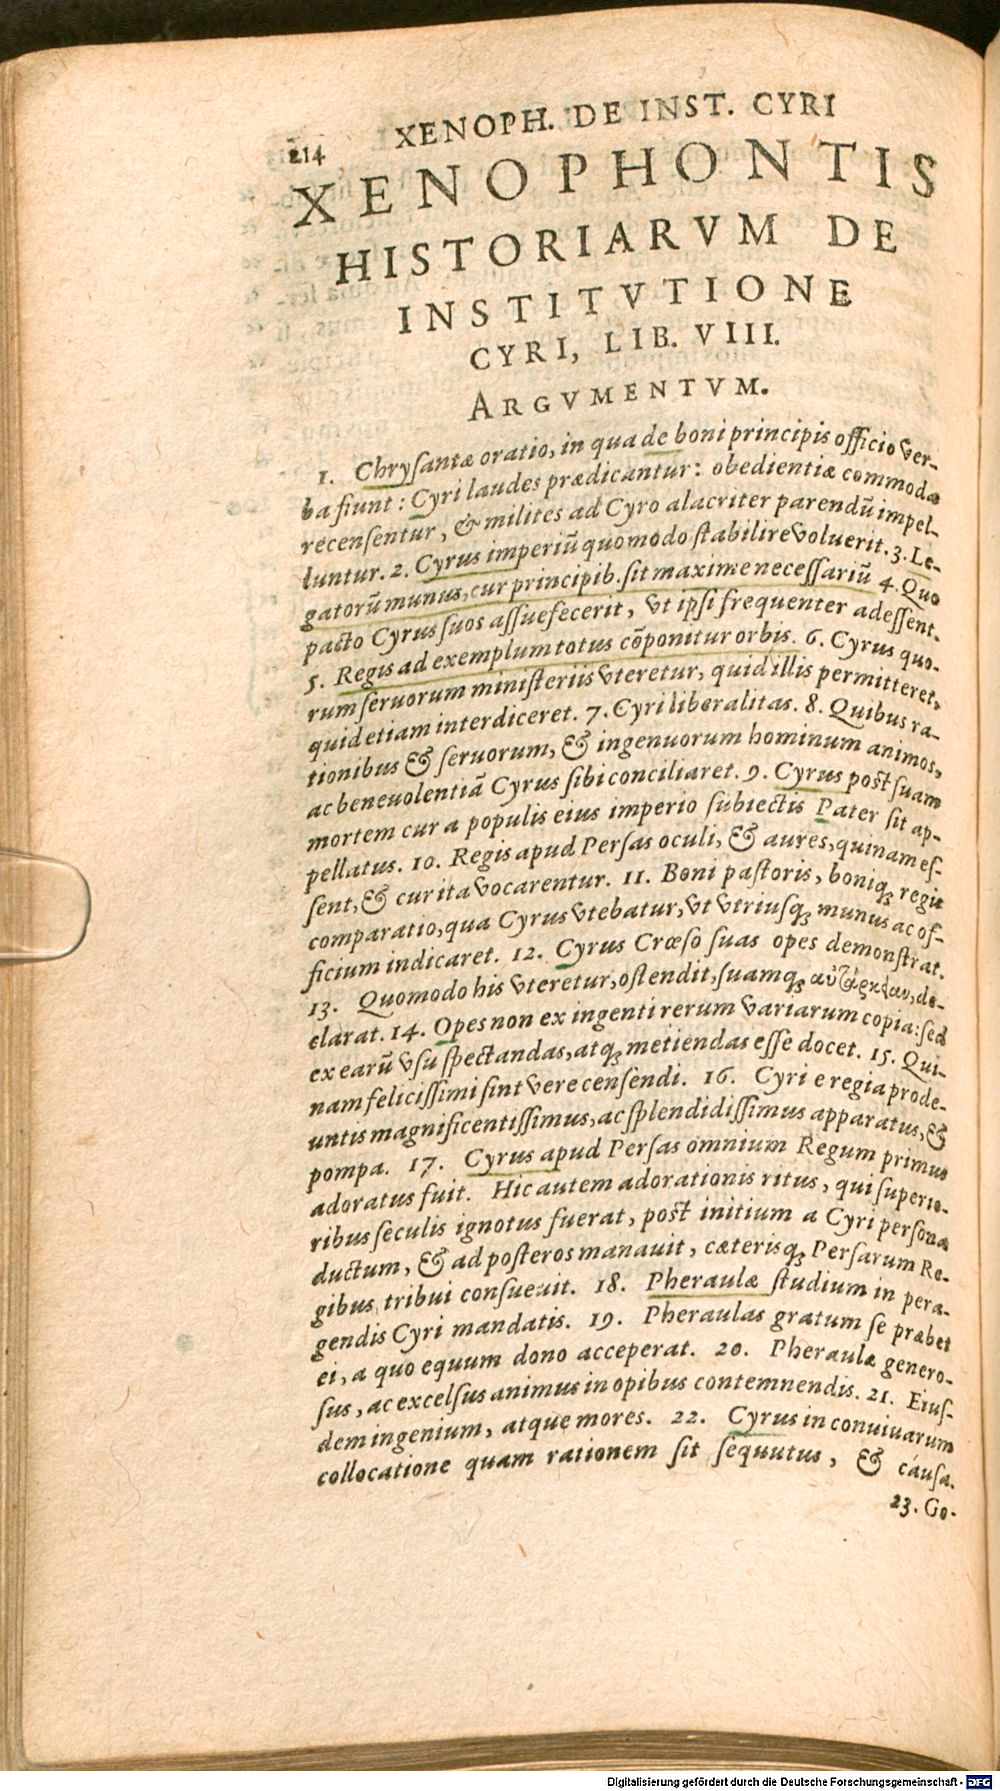 214 XENOPH. DE INST. CYRI
XENOPHONTIS
HISTORIARVM DE
INSTITVTIONE
CYRI, LIB. VIII.
ARGVMENTVM.
1. Chryſantæ oratio, in qua de boni principis officio ver-
ba fiunt: Cyri laudes prædicantur: obedientiæ commoda
recenſentur, & milites ad Cyro alacriter parendũ impel-
luntur. 2. Cyrus imperiũ quomodo ſtabilire voluerit. 3. Le-
gatorũ munus, cur principib. ſit maxime neceſſariũ 4. Quo
pacto Cyrus ſuos aſſuefecerit, vt ipſi frequenter adeſſent.
5. Regis ad exemplum totus cõponitur orbis. 6. Cyrus quo-
rum ſeruorum miniſteriis vteretur, quid illis permitteret,
quid etiam interdiceret. 7. Cyri liberalitas. 8. Quibus ra-
tionibus & ſeruorum, & ingenuorum hominum animos,
ac beneuolentiã Cyrus ſibi conciliaret. 9. Cyrus poſt ſuam
mortem cur a populis eius imperio ſubiectis Pater ſit ap-
pellatus. 10. Regis apud Perſas oculi, & aures, quinam eſ-
ſent, & cur ita vocarentur. 11. Boni paſtoris, boniq; regis
comparatio, qua Cyrus vtebatur, vt vtriuſq; munus ac of-
ficium indicaret. 12. Cyrus Crœſo ſuas opes demonſtrat.
13. Quomodo his vteretur, oſtendit, ſuamq; αὐτάρκειαν, de-
clarat. 14. Opes non ex ingenti rerum variarum copia: ſed
ex earũ vſu ſpectandas, atq; metiendas eſſe docet. 15. Qui-
nam feliciſſimi ſint vere cenſendi. 16. Cyri e regia prode-
untis magnificentiſſimus, ac ſplendidiſſimus apparatus, &
pompa. 17. Cyrus apud Perſas omnium Regum primus
adoratus fuit. Hic autem adorationis ritus, qui ſuperio-
ribus ſeculis ignotus fuerat, poſt initium a Cyri perſona
ductum, & ad poſteros manauit, cæterisq; Perſarum Re-
gibus tribui conſueuit. 18. Pheraulæ ſtudium in pera-
gendis Cyri mandatis. 19. Pheraulas gratum ſe præbet
ei, a quo equum dono acceperat. 20. Pheraulæ genero-
ſus, ac excelſus animus in opibus contemnendis. 21. Eiuſ-
dem ingenium, atque mores. 22. Cyrus in conuiuarum
collocatione quam rationem ſit ſequutus, & cauſa.
23. Go-
Digitalisierung gefördert durch die Deutsche Forschungsgemeinschaft - DFG